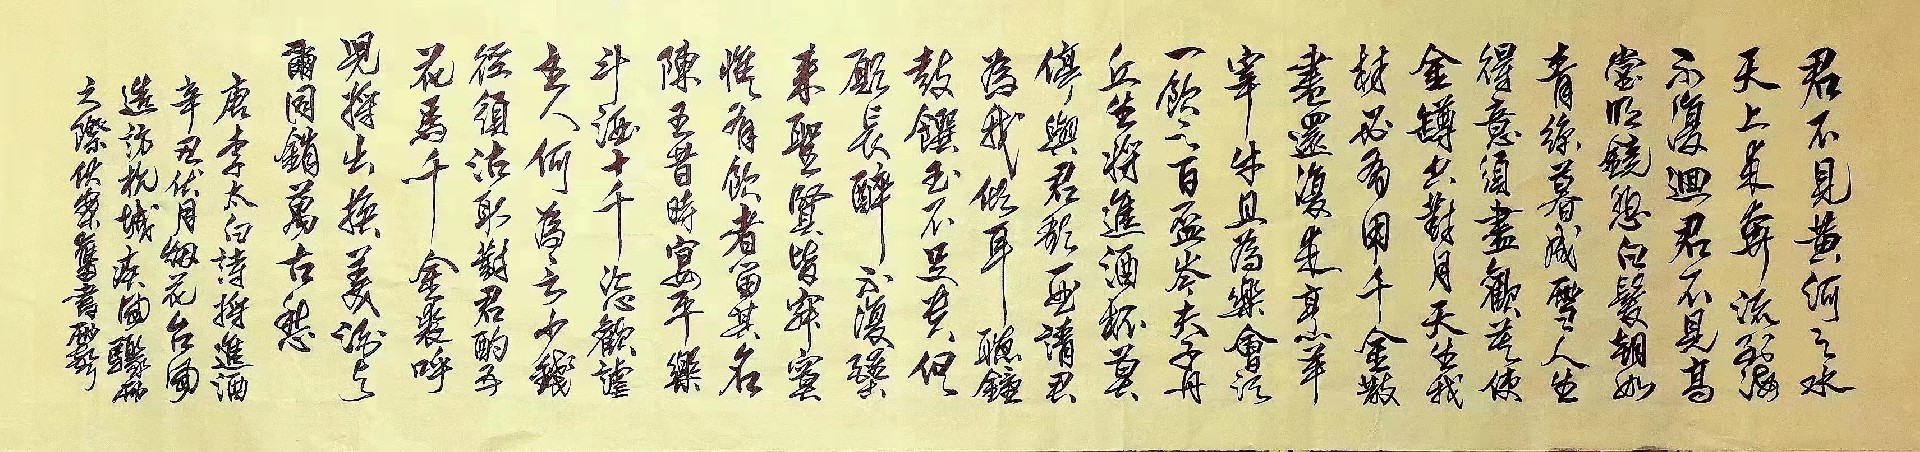 君不見黃河之水
天上來奔流到海
不復迴君不見高
堂明鏡悲白髮朝如
青絲暮成雪人生
得意須盡歡莫使
金罇空對月天生我
材必有用千金散
盡還復來烹羊
宰牛且為樂會須
一飲三百盃岑夫子丹
丘生將進酒杯莫
停與君歌一曲請君
為我傾耳聽鐘
鼓饌玉不足貴但
願長醉不復醒
來聖賢皆寂寞
惟有飲者留其名
陳王昔時宴平樂
斗酒十千恣歡謔
主人何為言少錢
徑須沽取對君酌五
花馬千金裘呼
兒將出換美酒與
爾同銷萬古愁
唐李太白詩將進酒
辛丑伏月烟花台風
造訪杭城疾風驟雨
之際伏案奮書